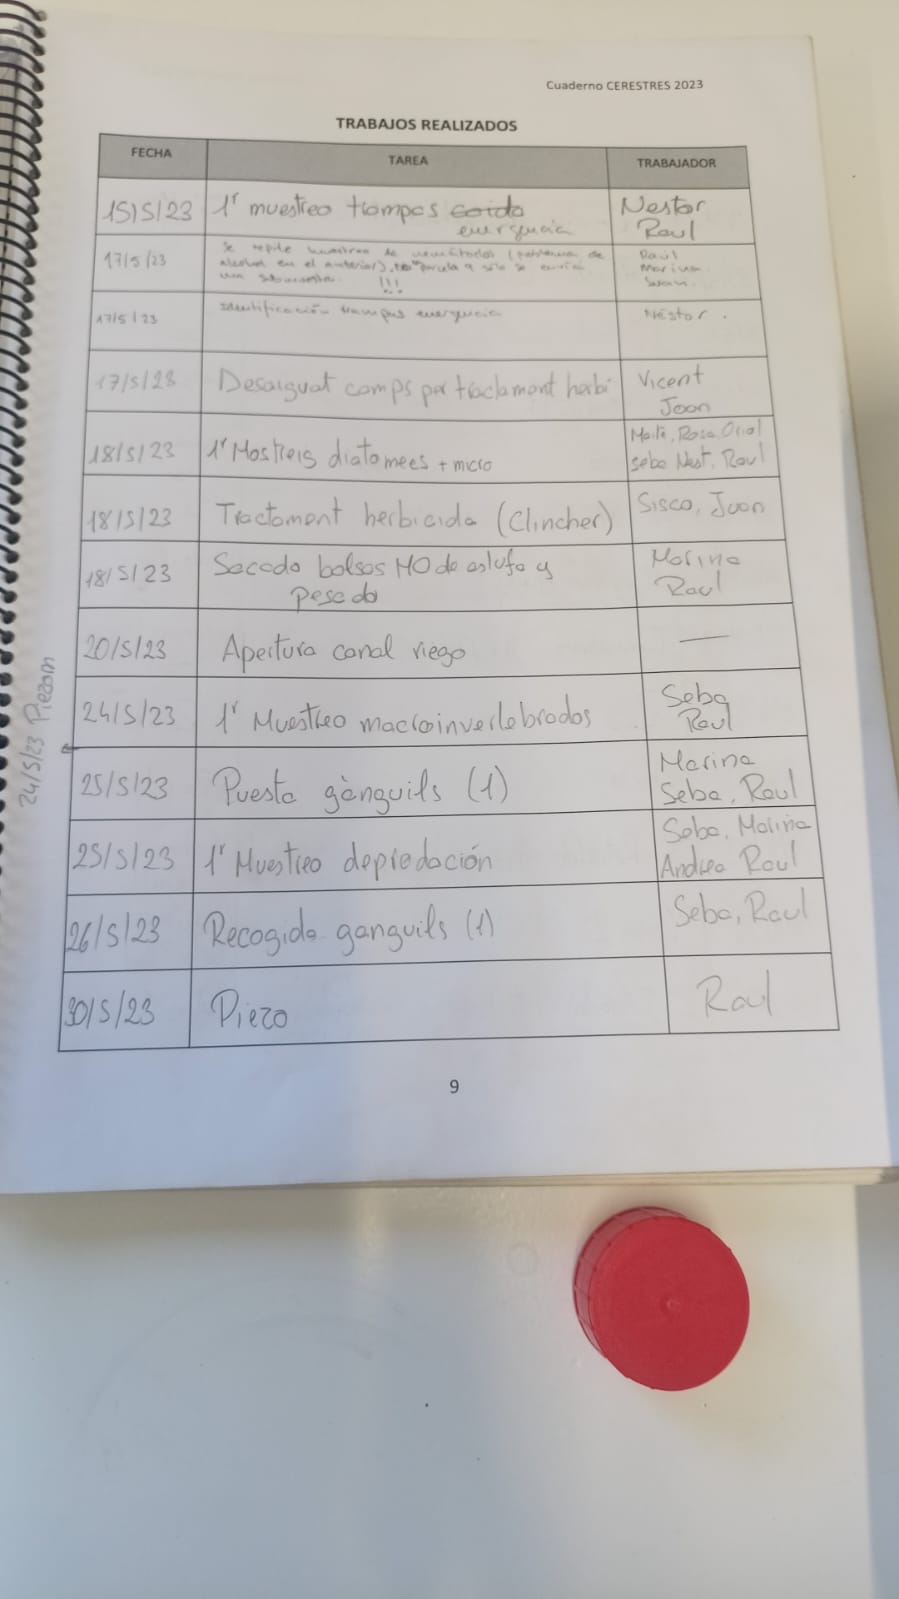 Cuaderno CERESTRES 2023
TRABAJOS REALIZADOS
FECHA TAREA TRABAJADOR
15/5/23 1r muestreo trampas caida Nestor
emergencia Raul
17/5/23 Se repite muestreo de nemátodos (problema de Raül
alcohol en el anterior), parcela 9 sólo se envía Marina
un submuestra. !!!
17/5/23 Identificación trampas emergencia Néstor.
17/5/23 Desaiguat camps per tractament herbi Vicent
Joan
18/5/23 1r Mostreig diatomees + micro Maite, Rosa, Oriol
Seba, Nest, Raul
18/5/23 Tractament herbicida (Clincher) Sisco, Juan
18/5/23 Sacado bolsas MO de estufa y Marina
pesado Raul
20/5/23 Apertura canal riego —
24/5/23 1r Muestreo macroinvertebrados Seba
Raul
24/5/23 Piezom
25/5/23 Puesta gànguils (1) Marina
Seba, Raul
25/5/23 1r Muestreo depredación Seba, Marina
Andrea Raul
26/5/23 Recogida ganguils (1) Seba, Raul
30/5/23 Piezo Raul
9